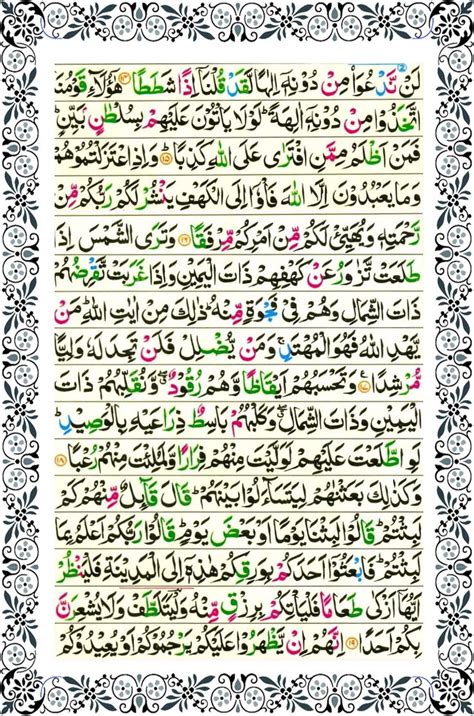 لَنْ نَّدْعُوَا۟ مِنْ دُوْنِهٖۤ اِلٰهًا لَّقَدْ قُلْنَاۤ اِذًا شَطَطًا ﴿۱۴﴾ هٰۤؤُلَآءِ قَوْمُنَا
اتَّخَذُوْا مِنْ دُوْنِهٖۤ اٰلِهَةً ؕ لَوْ لَا یَاْتُوْنَ عَلَیْهِمْ بِسُلْطٰنٍۭ بَیِّنٍ ؕ
فَمَنْ اَظْلَمُ مِمَّنِ افْتَرٰی عَلَی اللّٰهِ كَذِبًا ﴿۱۵﴾ وَاِذِ اعْتَزَلْتُمُوْهُمْ
وَمَا یَعْبُدُوْنَ اِلَّا اللّٰهَ فَاْوٗۤا اِلَی الْكَهْفِ یَنْشُرْ لَكُمْ رَبُّكُمْ مِّنْ
رَّحْمَتِهٖ وَیُهَیِّئْ لَكُمْ مِّنْ اَمْرِكُمْ مِّرْفَقًا ﴿۱۶﴾ وَتَرَی الشَّمْسَ اِذَا
طَلَعَتْ تَّزٰوَرُ عَنْ كَهْفِهِمْ ذَاتَ الْیَمِیْنِ وَاِذَا غَرَبَتْ تَّقْرِضُهُمْ
ذَاتَ الشِّمَالِ وَهُمْ فِیْ فَجْوَةٍ مِّنْهُ ؕ ذٰلِكَ مِنْ اٰیٰتِ اللّٰهِ ؕ مَنْ
یَّهْدِ اللّٰهُ فَهُوَ الْمُهْتَدِ ۚ وَمَنْ یُّضْلِلْ فَلَنْ تَجِدَ لَهٗ وَلِیًّا
مُّرْشِدًا ﴿۱۷﴾ وَتَحْسَبُهُمْ اَیْقَاظًا وَّهُمْ رُقُوْدٌ ۖ وَّنُقَلِّبُهُمْ ذَاتَ
الْیَمِیْنِ وَذَاتَ الشِّمَالِ ۖ وَكَلْبُهُمْ بَاسِطٌ ذِرَاعَیْهِ بِالْوَصِیْدِ ؕ
لَوِ اطَّلَعْتَ عَلَیْهِمْ لَوَلَّیْتَ مِنْهُمْ فِرَارًا وَّلَمُلِئْتَ مِنْهُمْ رُعْبًا ﴿۱۸﴾
وَكَذٰلِكَ بَعَثْنٰهُمْ لِیَتَسَآءَلُوْا بَیْنَهُمْ ؕ قَالَ قَآىِٕلٌ مِّنْهُمْ كَمْ
لَبِثْتُمْ ؕ قَالُوْا لَبِثْنَا یَوْمًا اَوْ بَعْضَ یَوْمٍ ؕ قَالُوْا رَبُّكُمْ اَعْلَمُ بِمَا
لَبِثْتُمْ ؕ فَابْعَثُوْۤا اَحَدَكُمْ بِوَرِقِكُمْ هٰذِهٖۤ اِلَی الْمَدِیْنَةِ فَلْیَنْظُرْ
اَیُّهَاۤ اَزْكٰی طَعَامًا فَلْیَاْتِكُمْ بِرِزْقٍ مِّنْهُ وَلْیَتَلَطَّفْ وَلَا یُشْعِرَنَّ
بِكُمْ اَحَدًا ﴿۱۹﴾ اِنَّهُمْ اِنْ یَّظْهَرُوْا عَلَیْكُمْ یَرْجُمُوْكُمْ اَوْ یُعِیْدُوْكُمْ